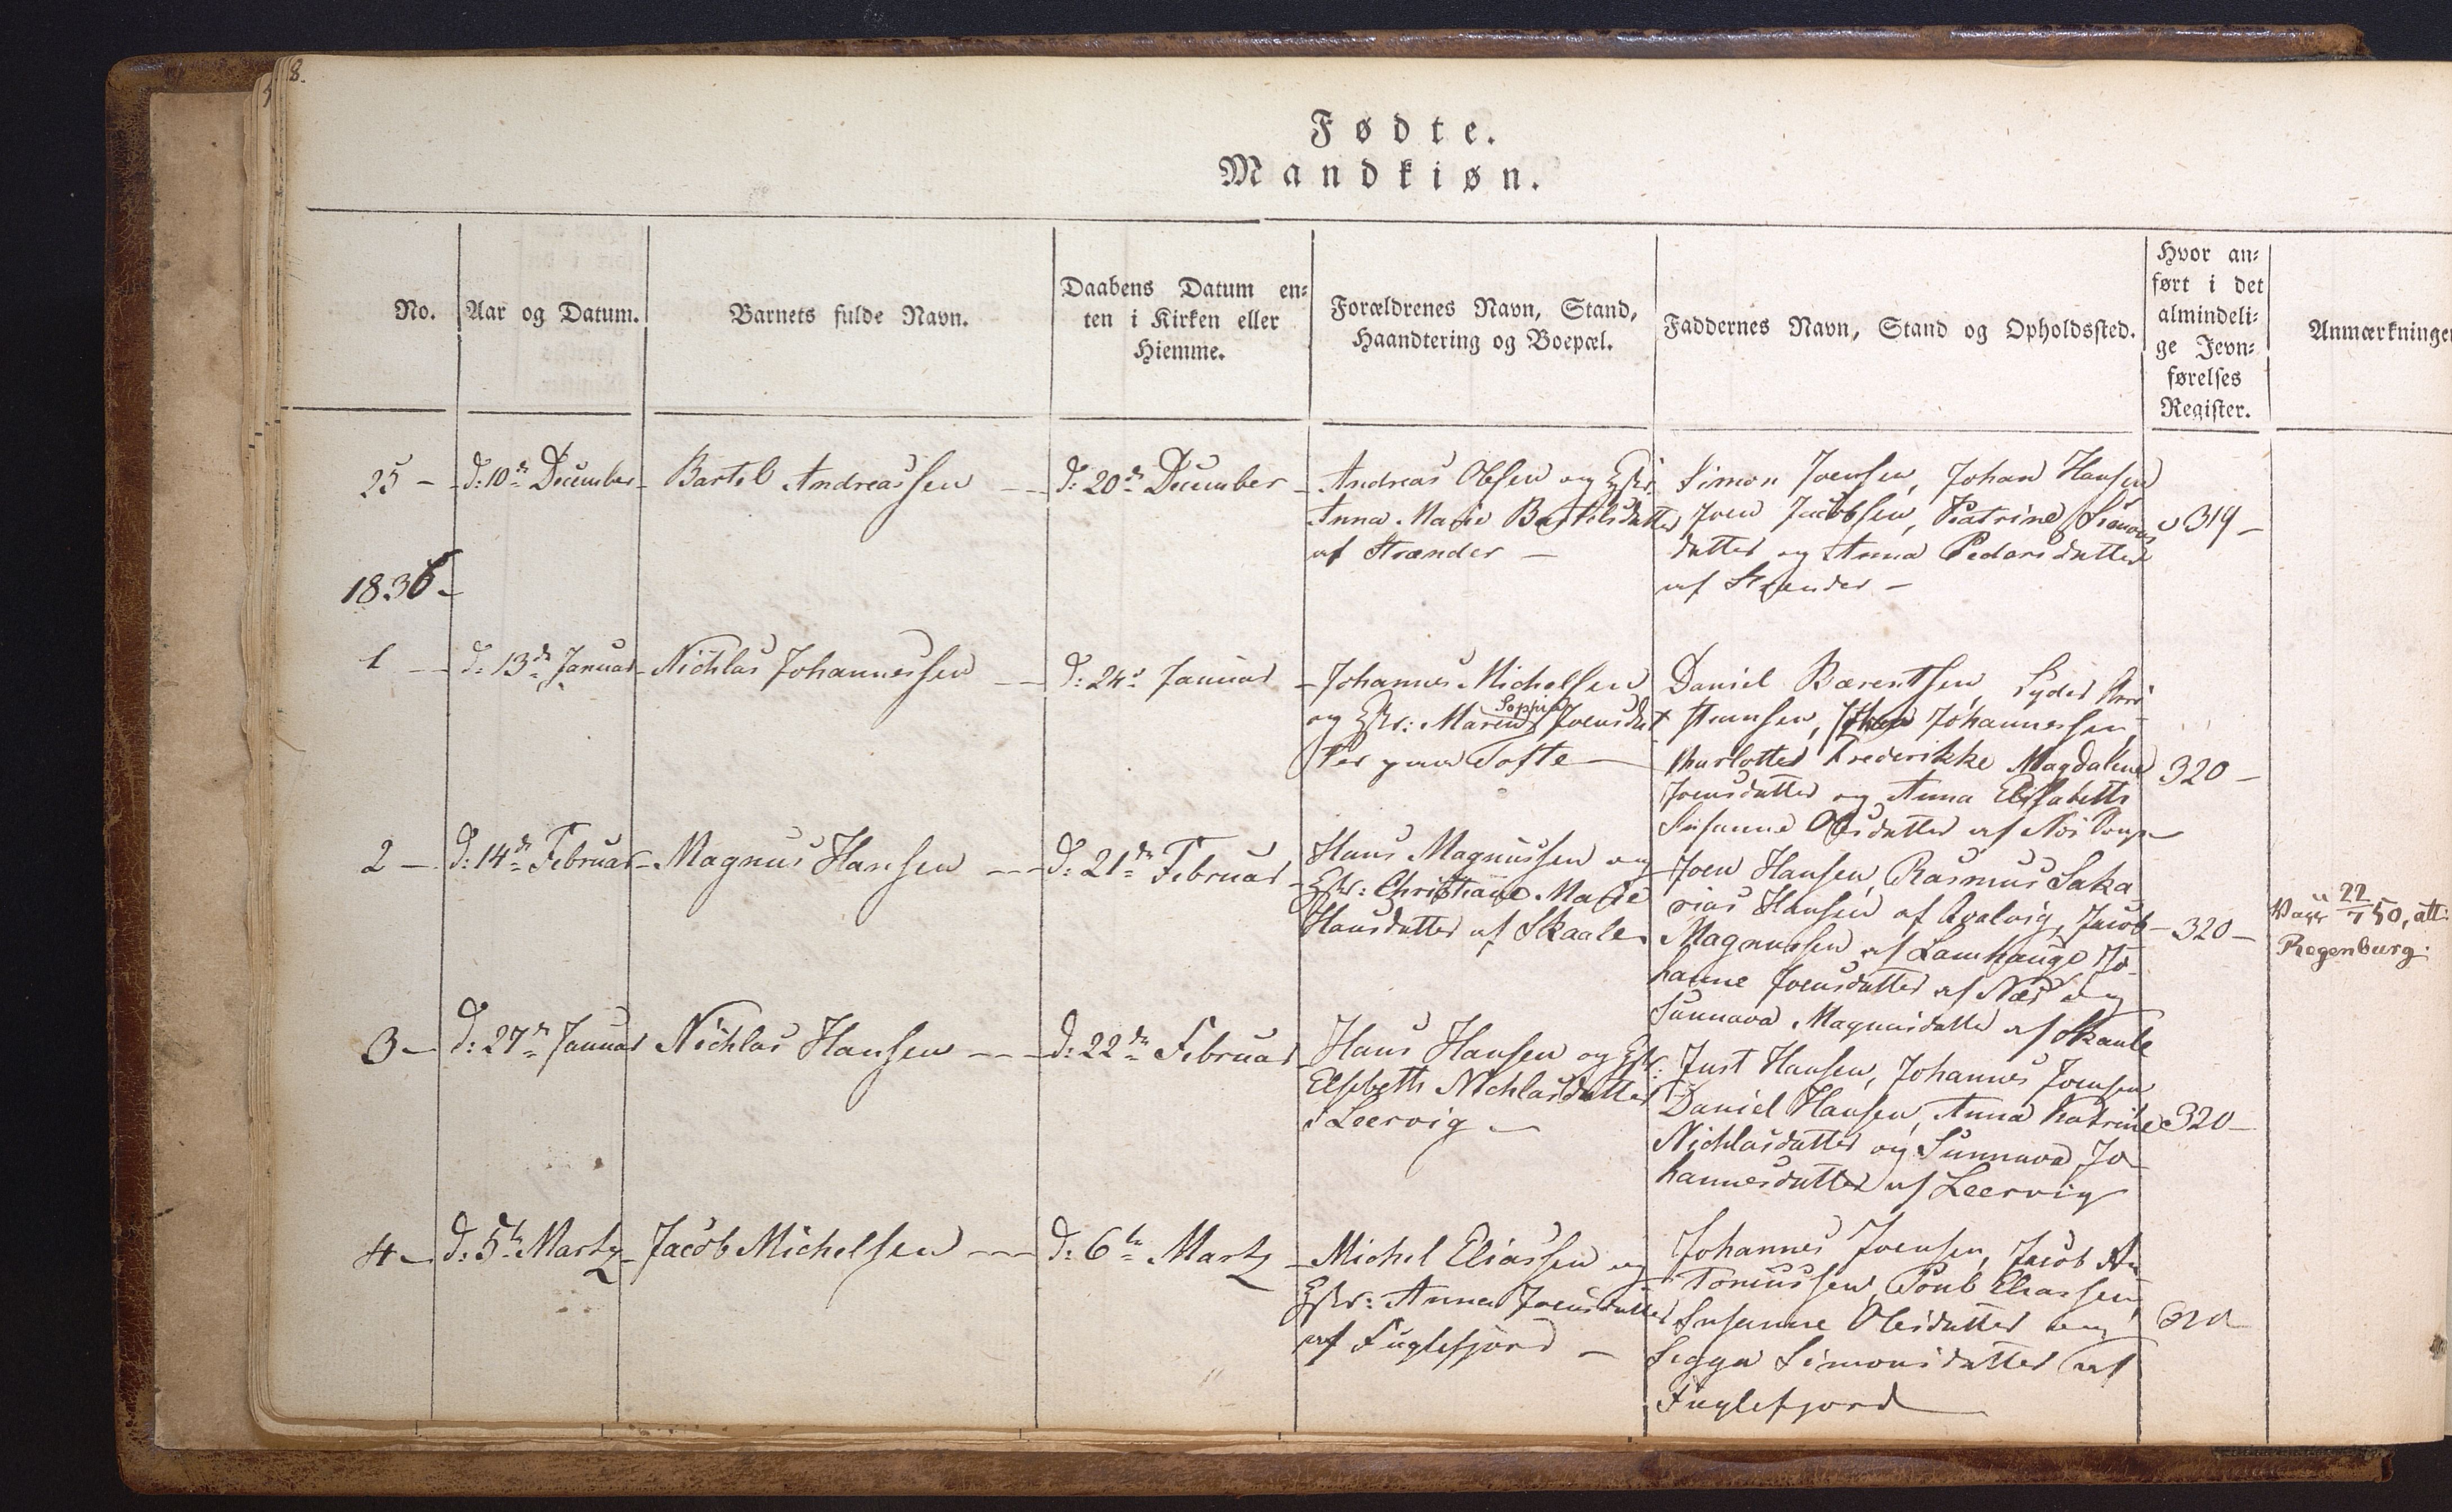 8.
Fødte.
Mandkiøn.
No.
Aar og Datum.
Barnets fulde Navn.
Daabens Datum en-
ten i Kirken eller
Hiemme.
Forældrenes Navn, Stand,
Haandtering og Boepæl.
Faddernes Navn, Stand og Opholdssted.
Hvor an-
ført i det
almindeli-
ge Jevn-
førelses
Register.
Anmærkninge
25 -
d: 10de December
Bartel Andreassen
d: 20de December
Andreas Olesen og Hstr:
Anna Marie Bartelsdatter
af Strænder -
Simon Joensen, Johan Hansen
Joen Jacobsen, Katrine Simons
datter og Anna Pedersdatter
af Strænder -
319 -
1836 -
1 -
d: 13de Januar
Nichlas Johannessen
d: 24de Januar
Johannes Michelsen
og Hstr: Maren Sophia Joensdat
ter paa Tofte
Daniel Bærentsen,
Johannessen,
Charlotte Frederikke Magdalene
Joensdatter og Anna Elisabeth
Susanne Olesdatter af
320 -
2 -
d: 14de Februar
Magnus Hansen
d: 21de Februar
Hans Magnussen og
Hstr: Christiane Marie
Hansdatter af Skaale.
Joen Hansen, Rasmus Saka
rias Hansen af Qvalvig, Jacob
Magnussen af Lamhauge Jo-
hanne Joensdatter af Næs og
Sunnava Magnusdatter af Skaale
320 -
22/7 50, att:
Regenburg.
3 -
d: 27de Januar
Nichlas Hansen
d: 22de Februar
Hans Hansen og Hstr:
Elsebeth Nichlasdatter
i Leervig -
Just Hansen, Johannes Joensen
Daniel Hansen, Anna Katrine
Nichlasdatter og Sunnava Jo-
hannesdatter af Leervig
320 -
4 -
d: 5te Martz
Jacob Michelsen
d: 6te Martz
Michel Eliassen og
Hstr: Anna Joensdatter
af Fuglefjord -
Johannes Joensen, Jacob An
toniussen, Poul Eliassen,
Susanne Olesdatter og
Sigga Simonsdatter af
Fuglefjord
320